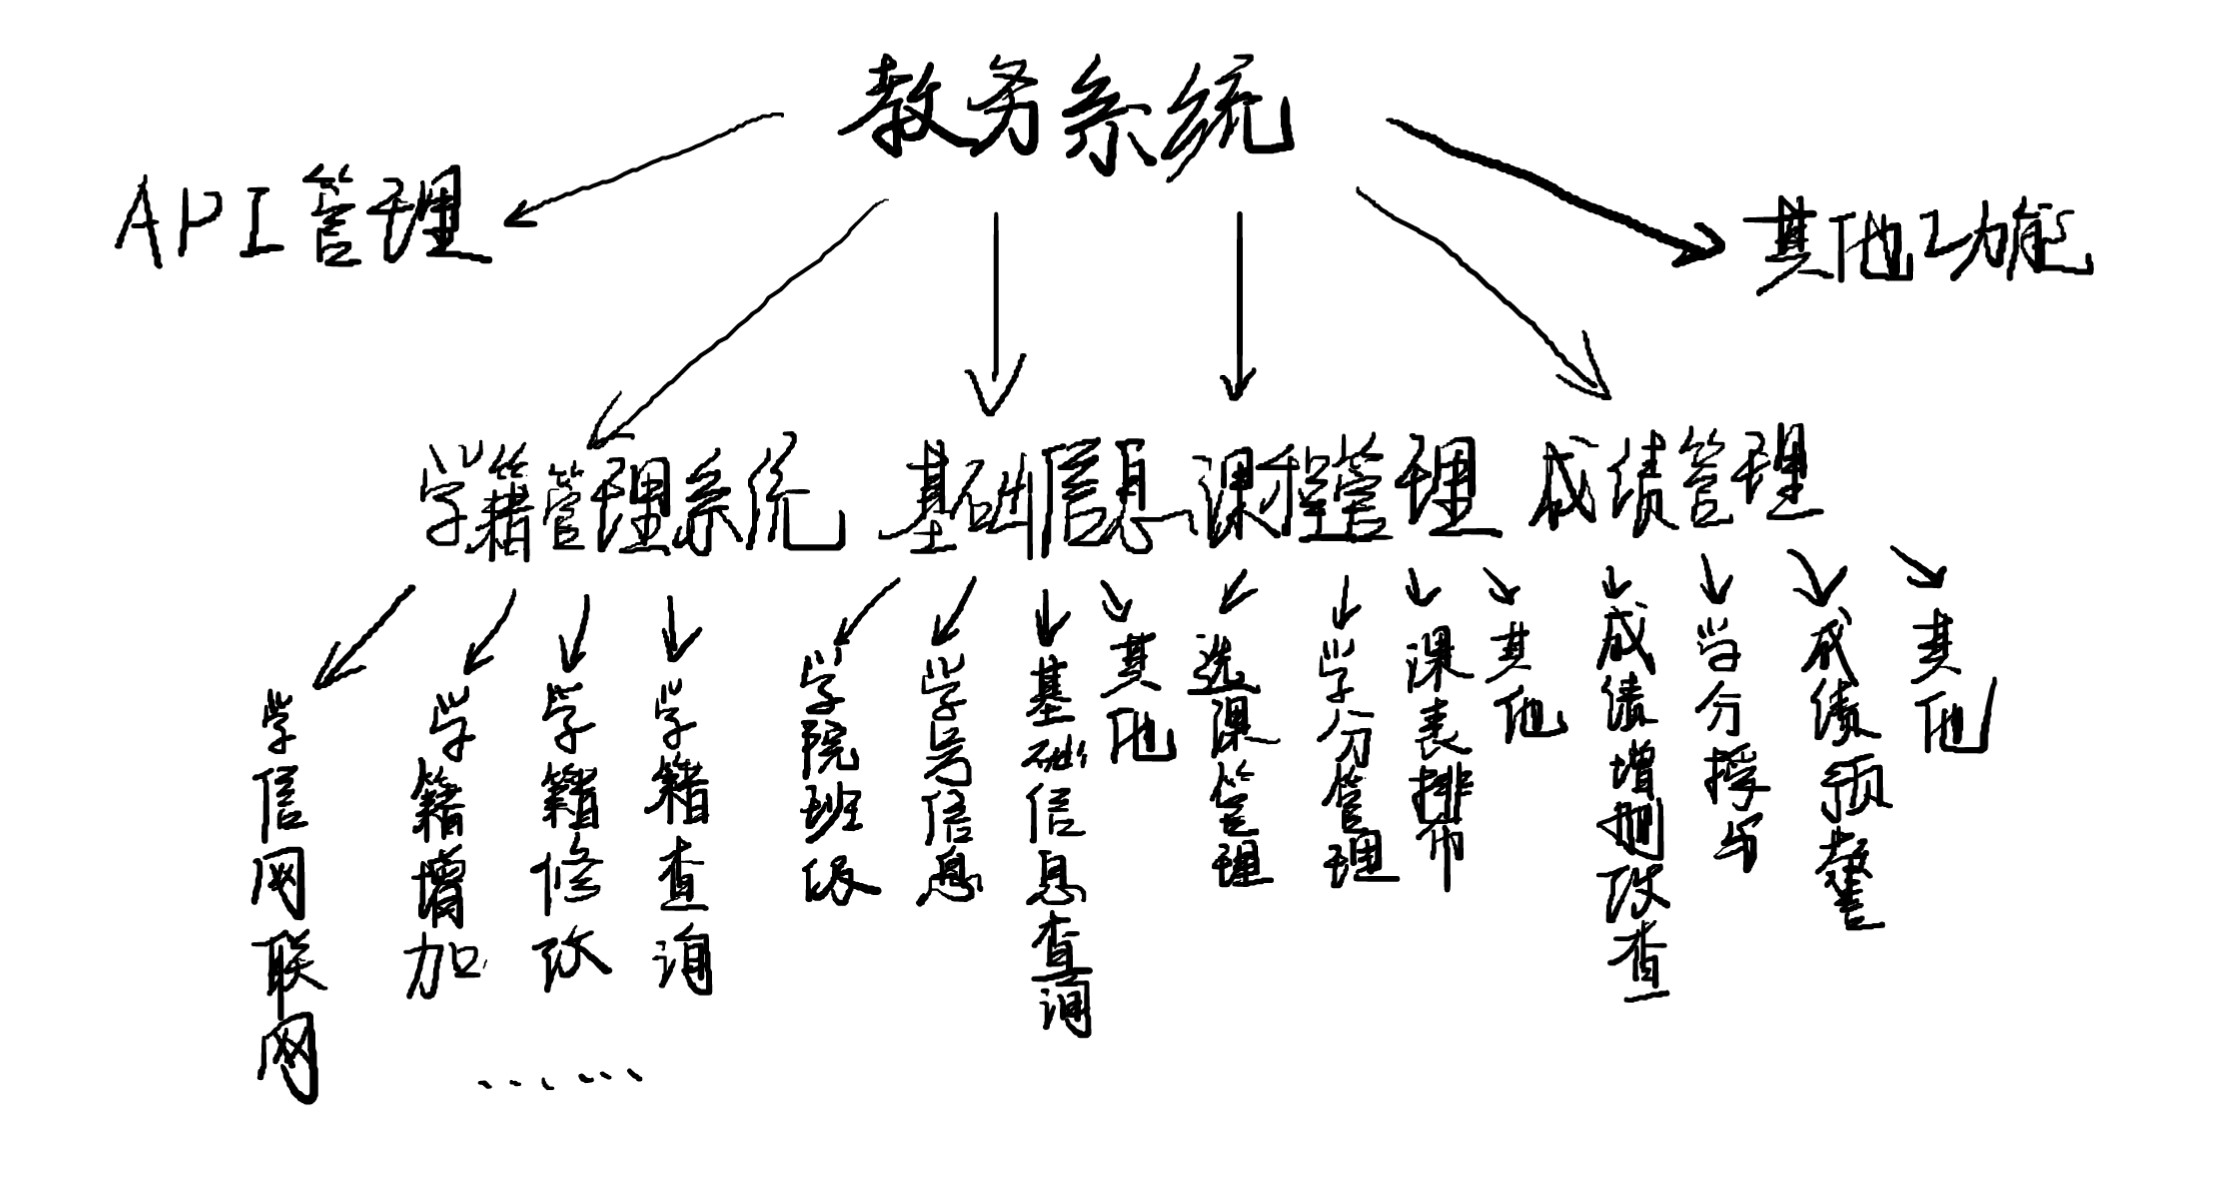 教务系统
API管理
其他功能
学籍管理系统
基础信息
课程管理
成绩管理
学信网联网
学籍增加
学籍修改
学籍查询
学院班级
学号信息
基础信息查询
其他
选课管理
学分管理
课表排布
其他
成绩增删改查
学分授与
成绩预警
其他
……